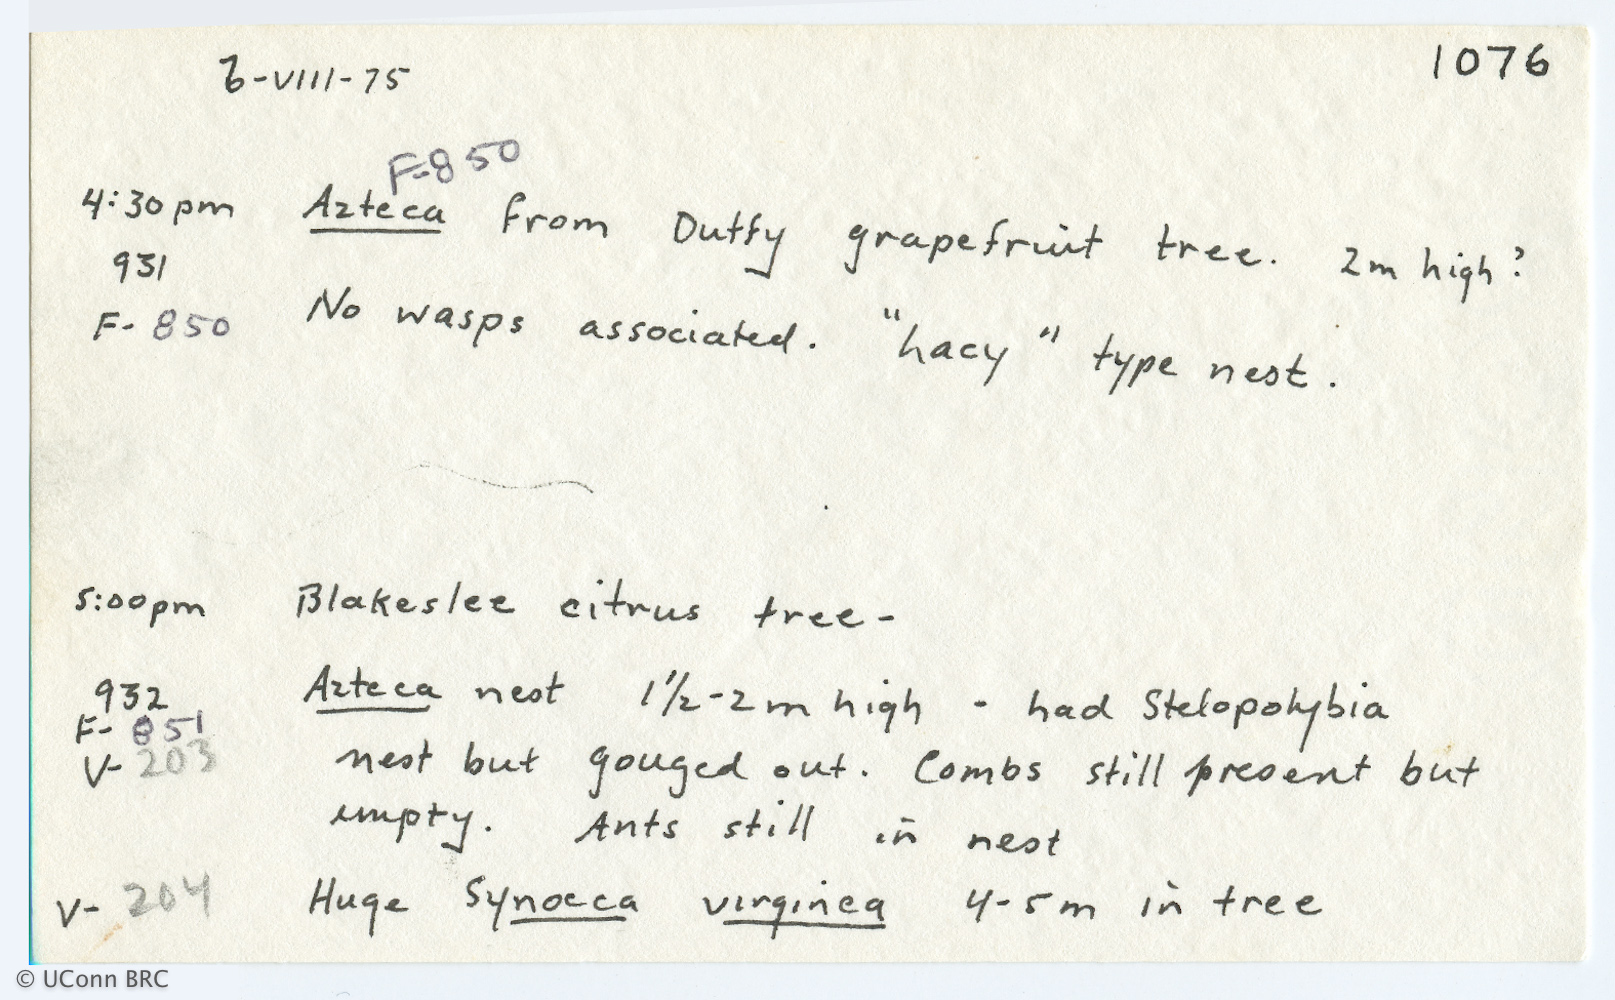 1076
6-VIII-75
F-850
4:30pm Azteca from Dutfy grapefruit tree. 2m high?
931
F-850 No wasps associated. "hacy" type nest.
5:00pm Blakeslee citrus tree-
932 Azteca nest 1½-2m high - had Stelopolybia
F-851
V-203 nest but gouged out. Combs still present but
empty. Ants still in nest
V-204 Huge Synoeca virginea 4-5m in tree
© UConn BRC